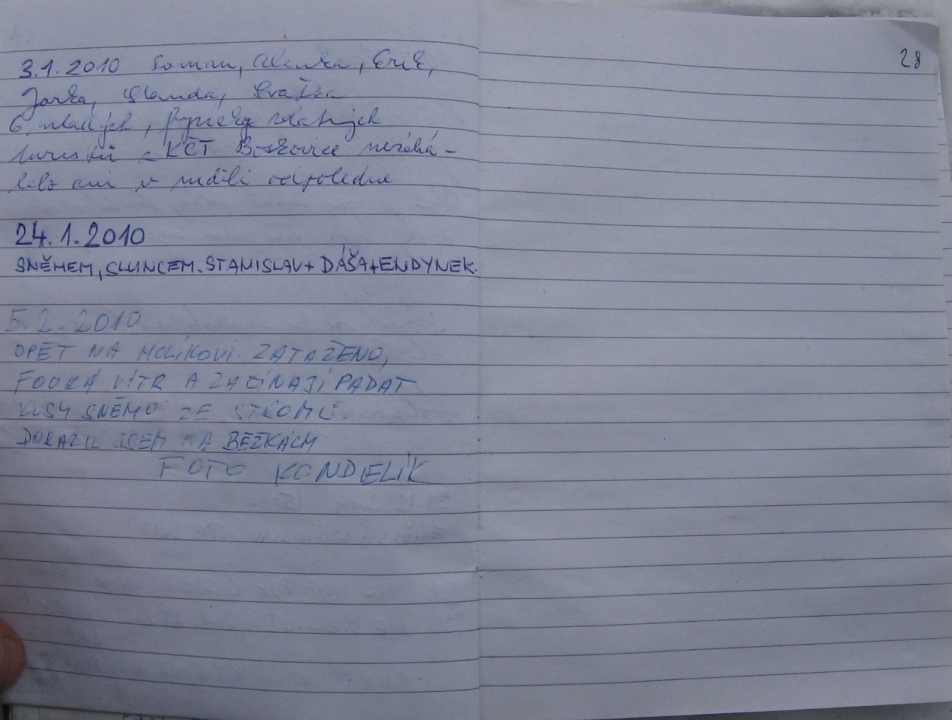 3.1.2010 Roman, Alenka, Erik,
Jarka, Standa,
6 mladých, fyzicky zdatných
turistů z KČT Boskovice nezahá-
lelo ani v neděli odpoledne
24.1.2010
SNĚHEM, SLUNCEM. STANISLAV + DÁŠA + ENDYNEK.
5.2.2010
OPĚT NA HOLÍKOVI ZATAŽENO,
FOUKÁ VÍTR A ZAČÍNAJÍ PADAT
KUSY SNĚHU ZE STROMŮ.
DORAZIL JSEM NA BĚŽKÁCH
FOTO KONDELÍK
28